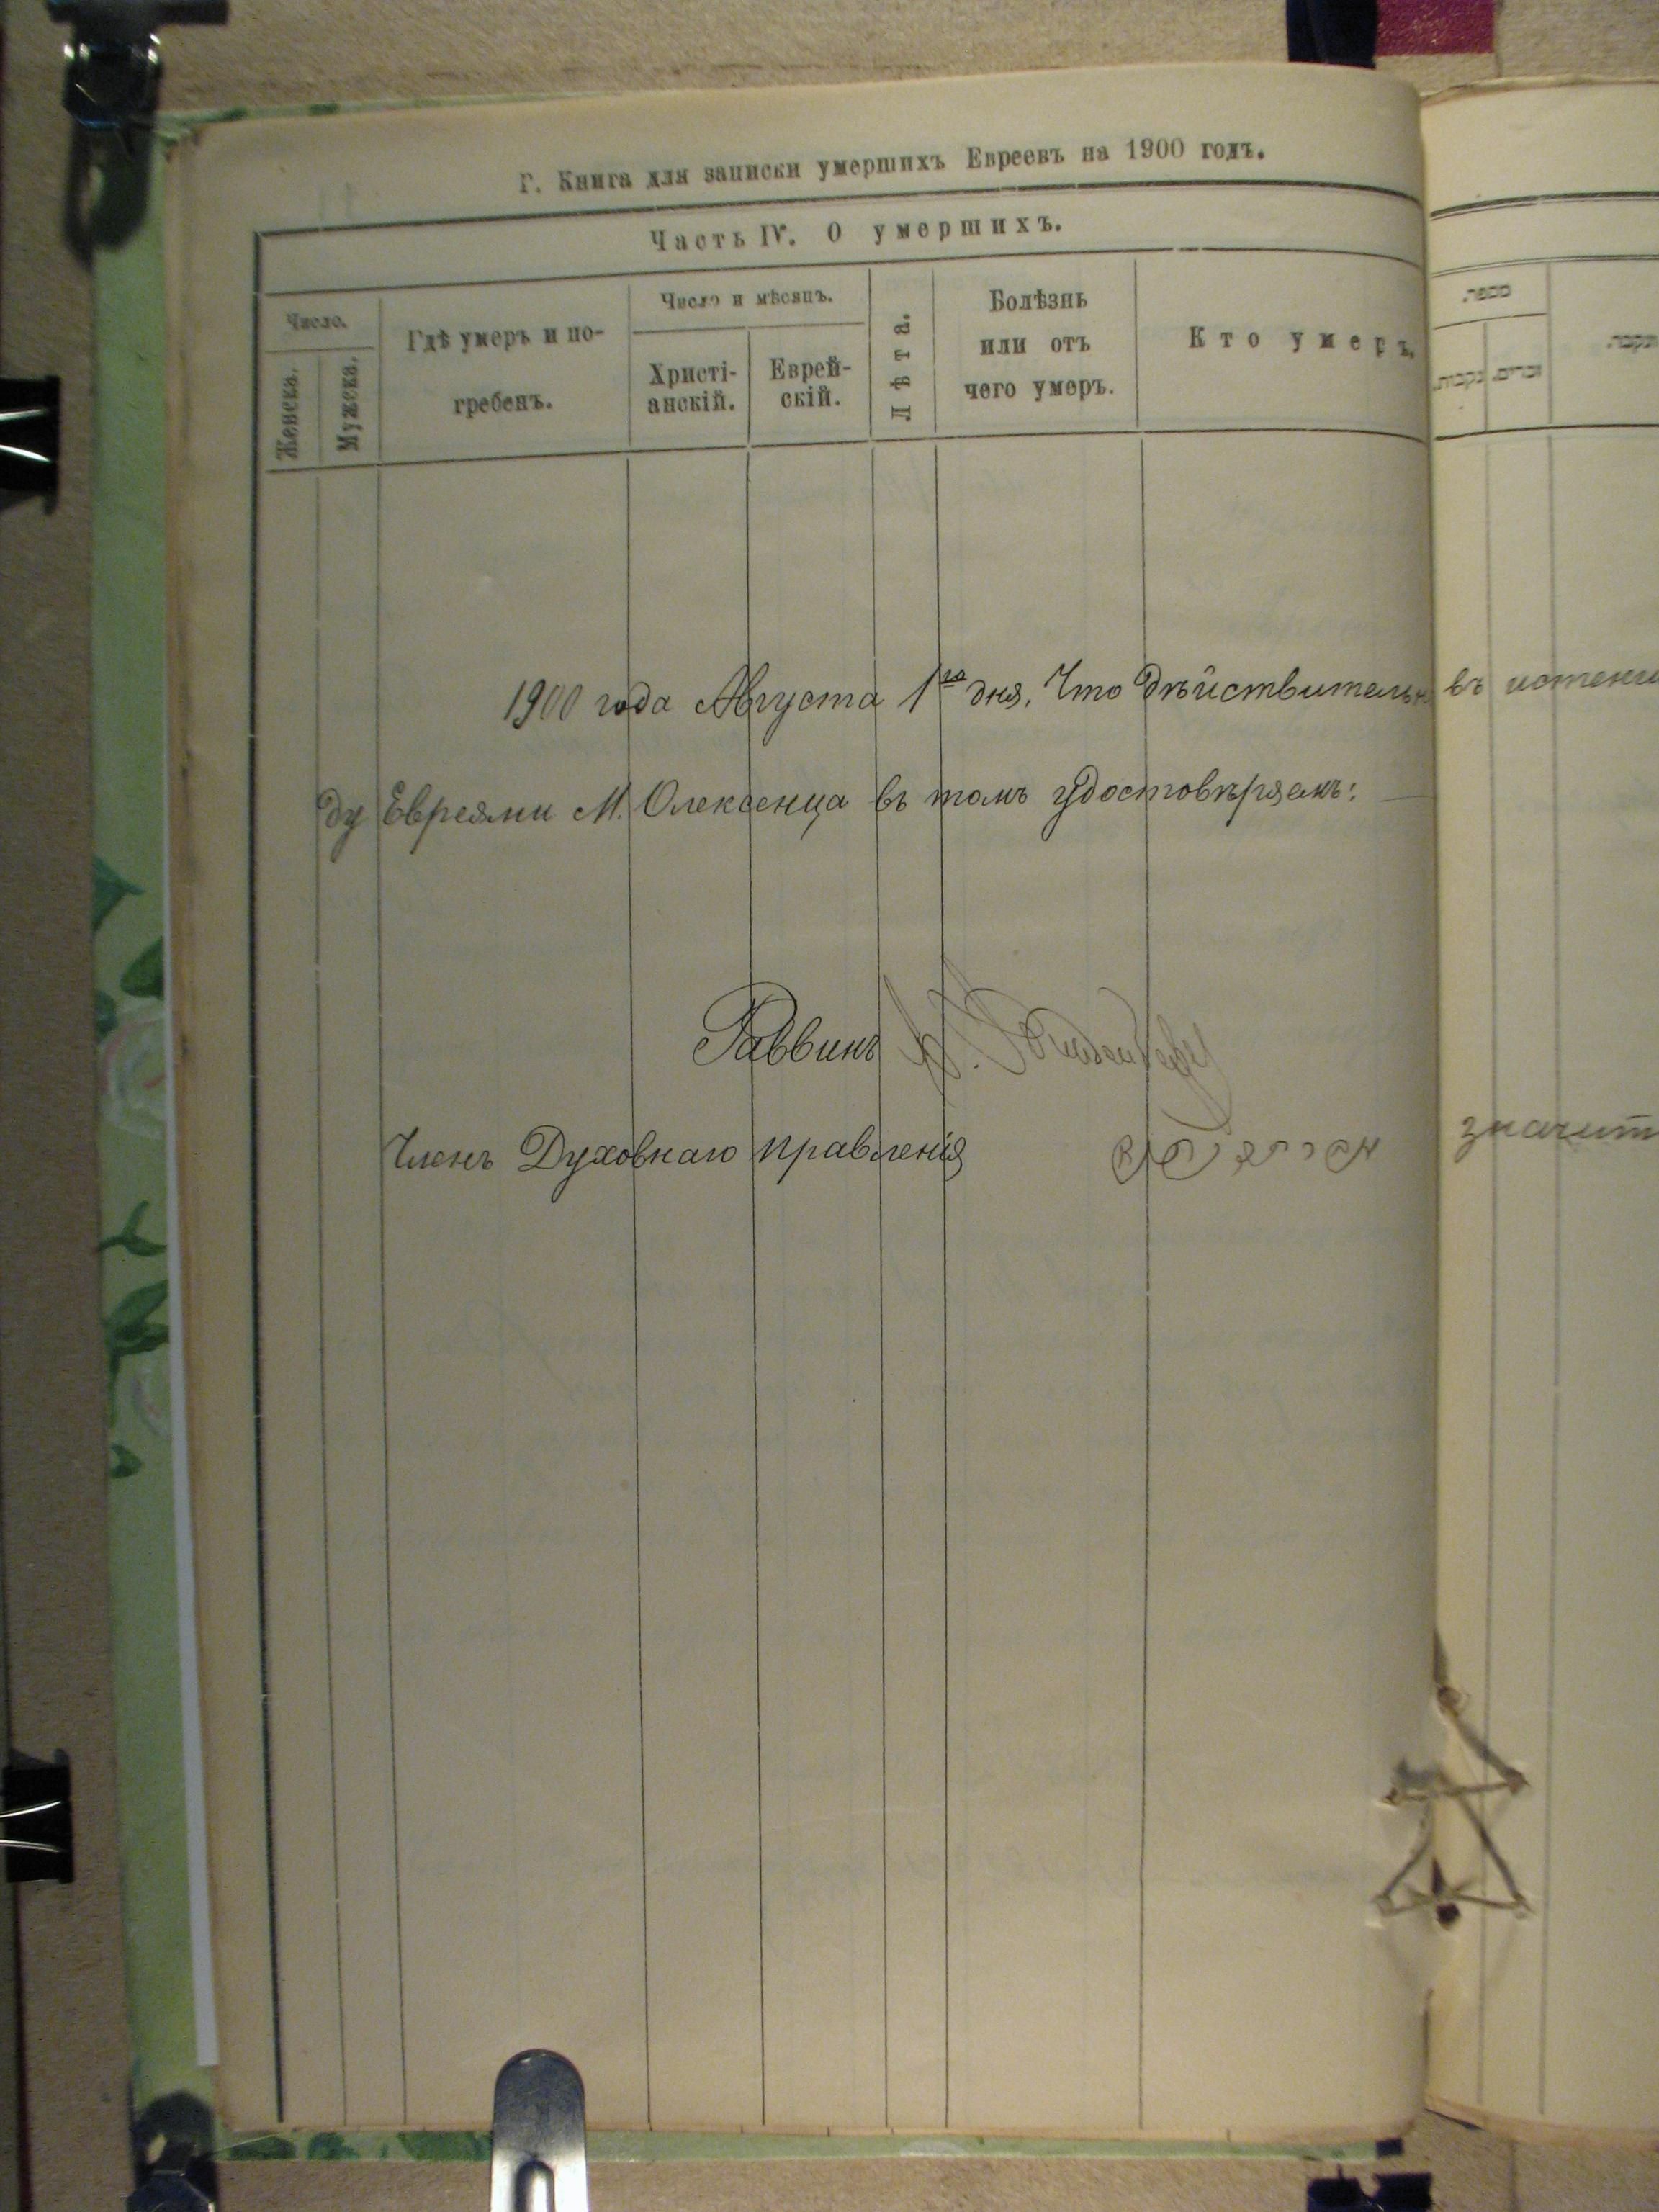 Г. Книга для записки умершихъ Евреевъ на 1900 годъ.
Часть IV. О умершихъ.
Число.
Женска.
Мужска.
Гдѣ умеръ и по-
гребенъ.
Число и мѣсяцъ.
Христі-
анскій.
Еврей-
скій.
Лѣта.
Болѣзнь
или отъ
чего умеръ.
Кто умеръ.
מספר.
זכרים.
נקבות.
1900 года Августа 1го дня, Что дѣйствительно въ истекш
ду Евреями М. Олексенца въ томъ удостовѣряемъ:
Раввинъ
Членъ Духовнаго правленія
значит